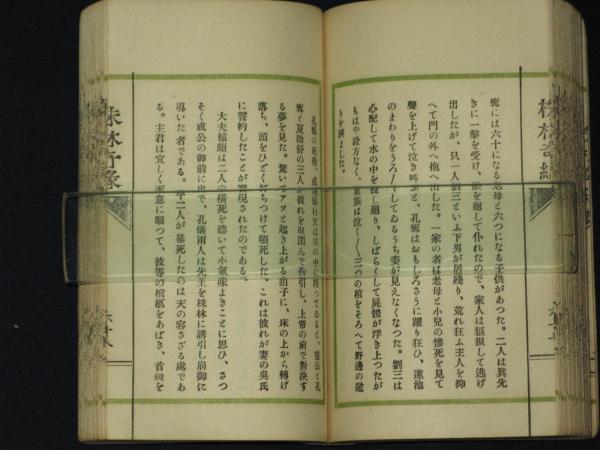 株林奇緣
寧には六十になる老母と六つになる子供があつた。二人は眞先
きに一撃を受け、眼を廻して仆れたので、家人は狼狽して逃げ
出したが、只一人劉三といふ下男が居殘り、荒れ狂ふ主人を抑
へて門の外へ抱へ出した。一家の者は老母と小兒の慘死を見て
聲を上げて泣き叫ぶと、孔寧はおもしろさうに躍り狂ひ、蓮池
のまわりをうろ〳〵してゐるうち姿が見えなくなつた。劉三は
心配して水の中を搜し廻り、しばらくして屍體が浮き上つたが
もはや詮方なく、家族は泣く〳〵三つの棺をそろへて野邊の送
りを濟ました。
孔寧の死後、或夜儀行父は
の中に ゐると、靈公と孔
寧と夏徵舒の三人が彼れを取圍んで拘引し、上帝の前で對決す
る夢を見た。驚いてアツと起き上がる拍子に、床の上から轉げ
落ち、頭をひどく打ちつけて頓死した。これは彼れが妻の吳氏
に誓約したことが實現されたのである。
大夫轅頗は二人の橫死を聽いて小氣味よきことに思ひ、さつ
そく成公の御前に出で、孔儀兩人は先主を株林に誘引し崩御に
導いた者である。今二人が暴死したのは天の容さざる處であ
る。主君は宜しく天意に順つて、彼等の棺柩をあばき、首級を
株林奇緣
六十八